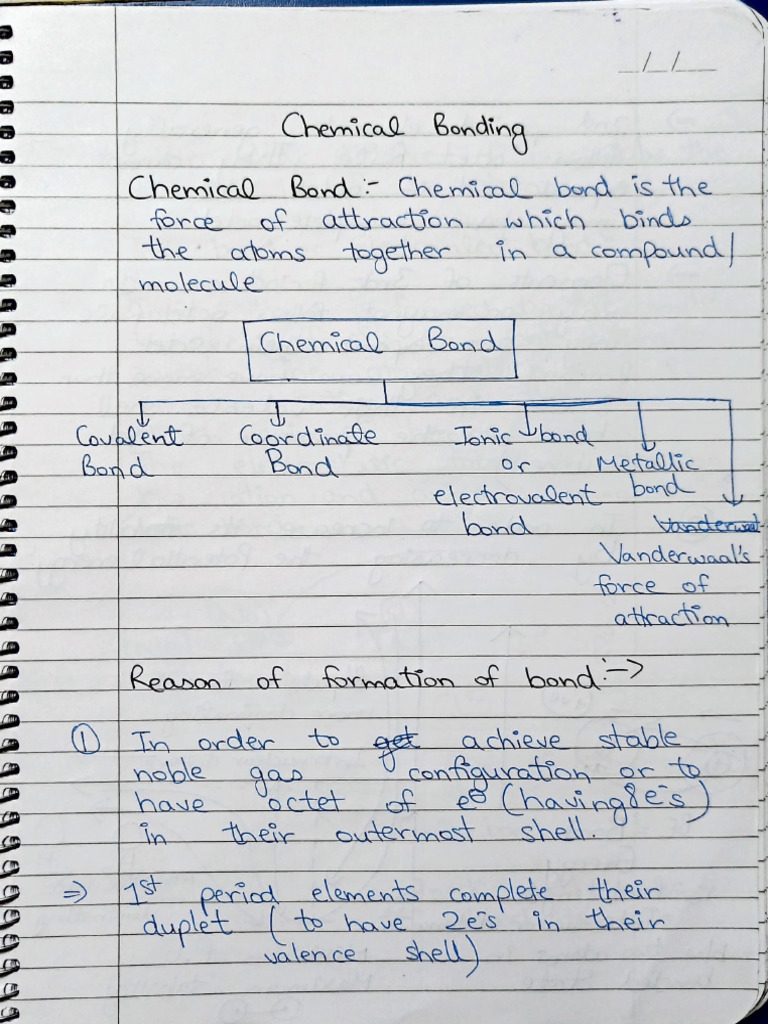 _/_/__
Chemical Bonding
Chemical Bond:- Chemical bond is the
force of attraction which binds
the atoms together in a compound/
molecule
Chemical Bond
Covalent Bond
Coordinate Bond
Ionic bond or electrovalent bond
Metallic bond
Vanderwaal's force of attraction
Reason of formation of bond:->
① In order to get achieve stable
noble gas configuration or to
have octet of e⊖ (having 8e⁻s)
in their outermost shell.
⇒ 1st period elements complete their
duplet (to have 2e⁻s in their
valence shell)